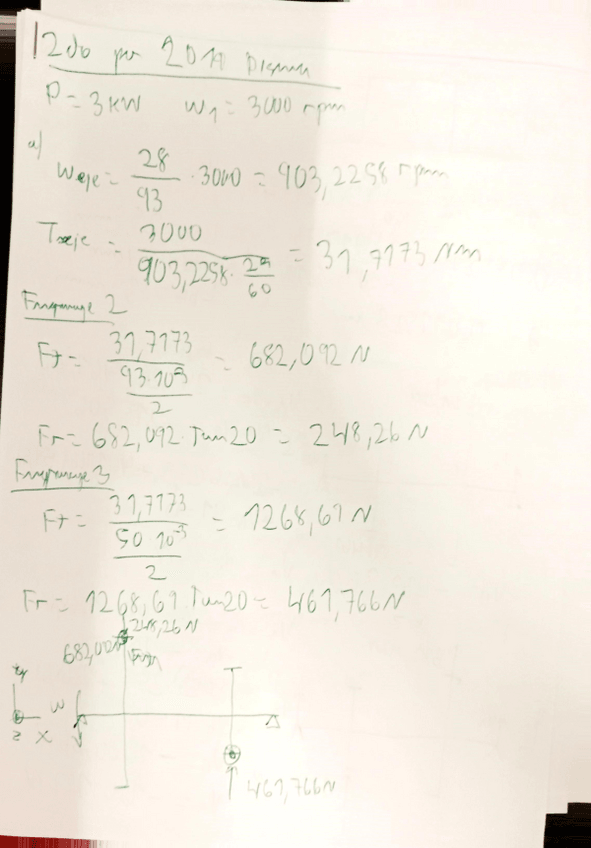 2do par 2019
P = 3 KW    W1 = 3000 rpm
a)
Weje = 28/93 · 3000 = 903,2258 rpm
Teje = 3000/(903,2258 · 2π/60) = 31,7173 Nm
Engranaje 2
Ft = 31,7173/(93·10^-3/2) = 682,092 N
Fr = 682,092 · Tan20 = 248,26 N
Engranaje 3
Ft = 31,7173/(50 10^-3/2) = 1268,69 N
Fr = 1268,69 · Tan20 = 461,766 N
248,26 N
y
W
z
x
461,766 N